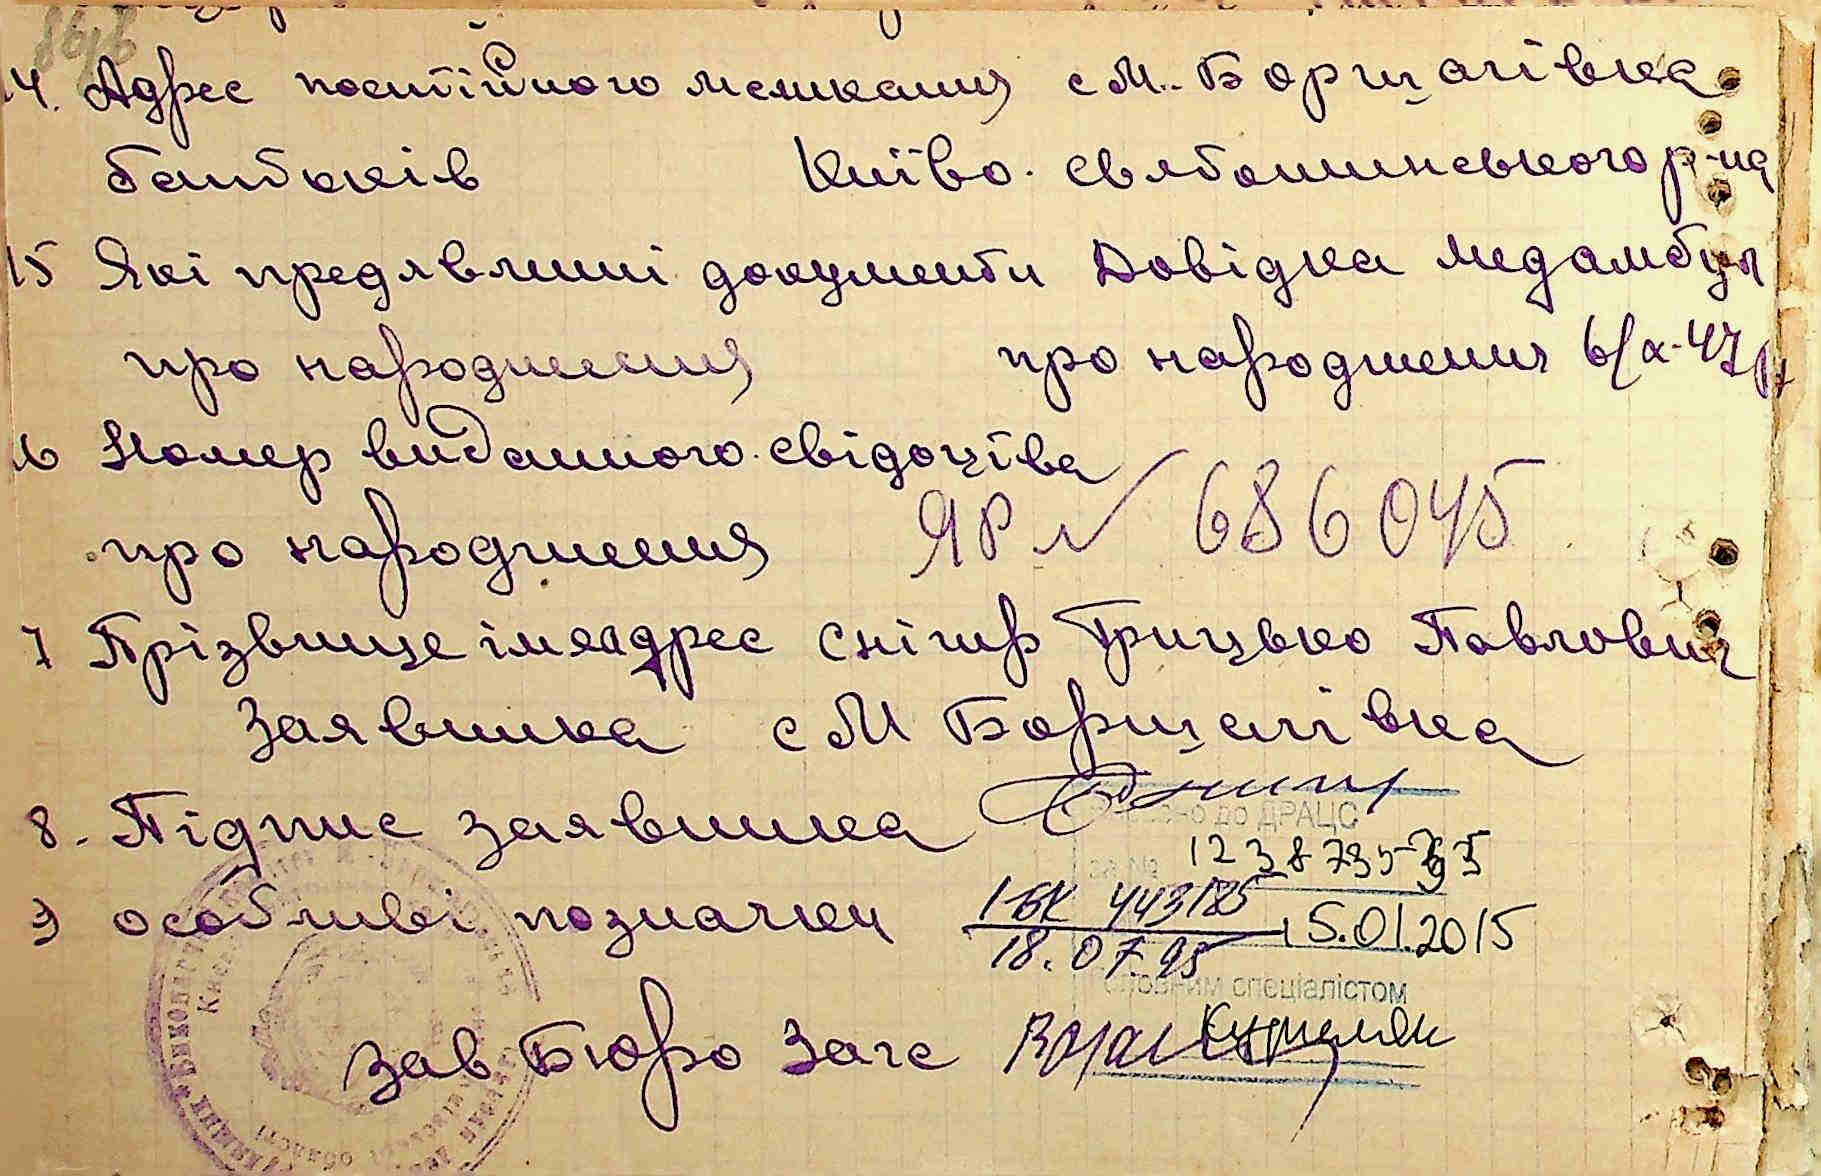 14. Адрес постійного мешкання с М. Борщагівка
батьків Київо. Святошинського р-на
15 Які предявлині документи Довідка медамбул
про народження про народження 6/х-47 р
16 Номер виданного свідоцтва
про народження ЯР № 686045
7 Прізвище імя адрес Снігир Грицько Павлович
Заявника с М Борщагівка
8. Підпис заявника
но до ДРАЦС
9 особливі позначки І-БК 443185 15.01.2015
18.07.95
спеціалістом
Зав Бюро Загс